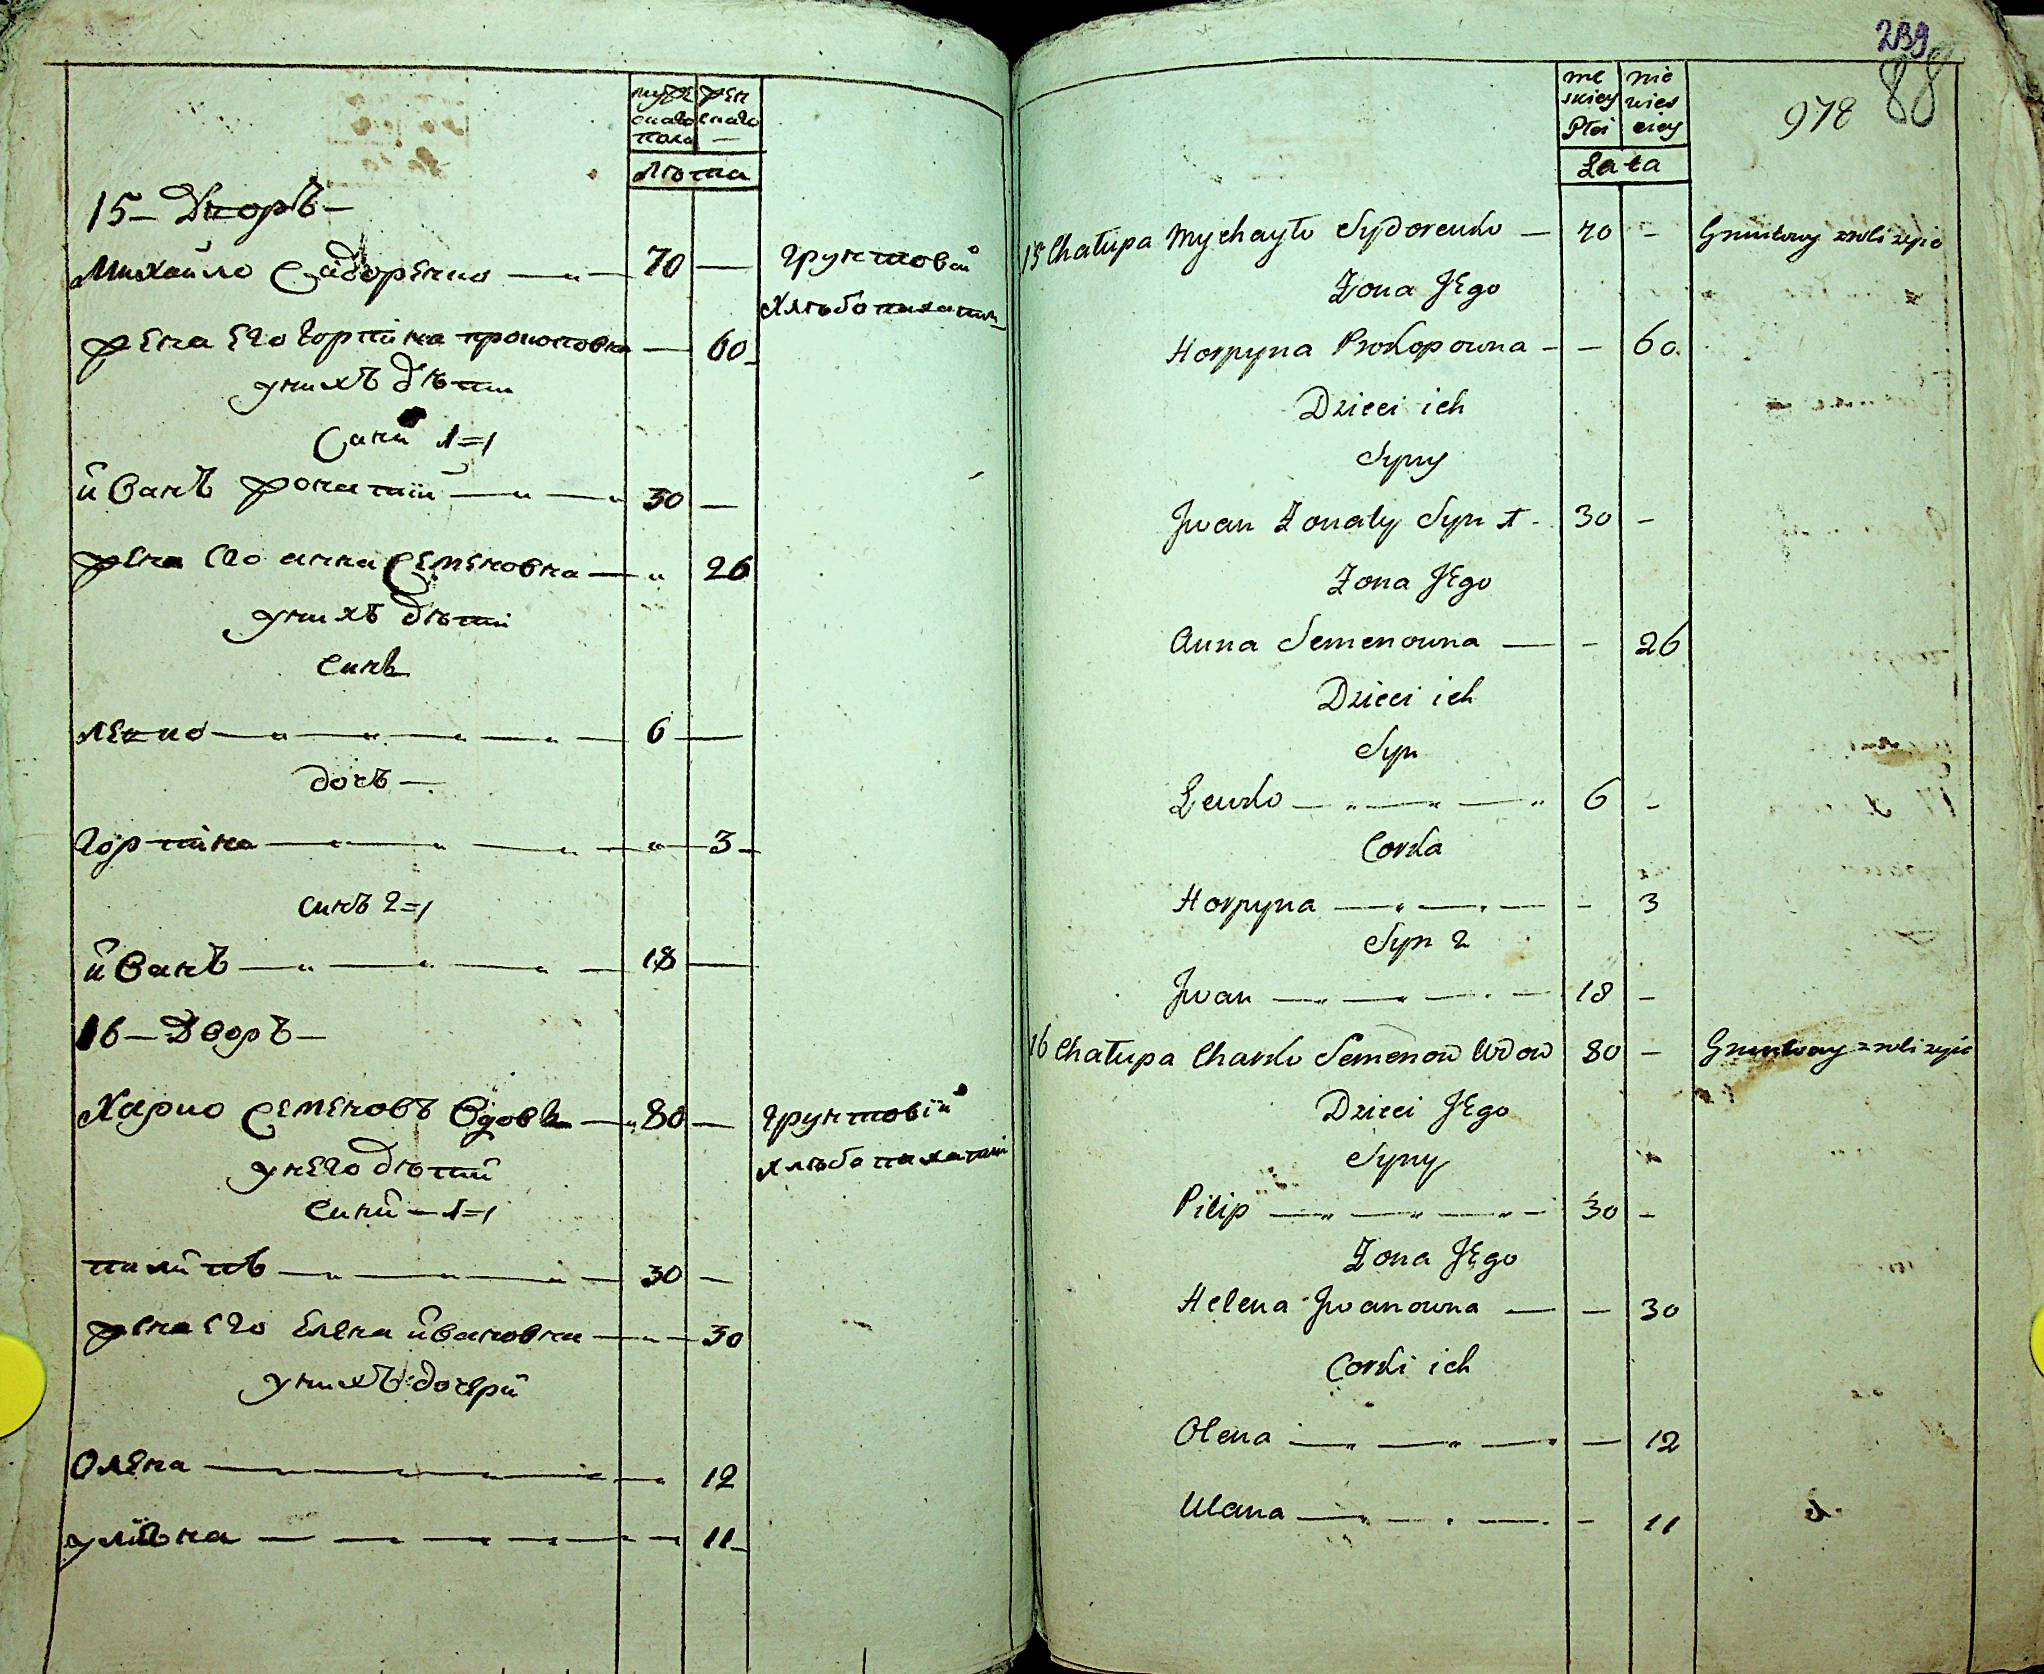 муже
скаго
пола
жен
скаго
—
Лѣта
15 — Дворъ —
Михайло Сидоренко — „ — 70 —
грунтовий
хлѣбопахатни
жена его горпина прокоповна — 60
у нихъ дѣти
Сини 1=1
йванъ жонатий — „ — „ 30 —
жена его анна Семеновна — „ 26
у нихъ дѣти
синъ
левко — „ — „ — „ — „ — 6 —
дочъ —
горпина — „ — „ — „ — „ — 3 —
синъ 2=1
йванъ — „ — „ — „ — 18 —
16 — Дворъ —
Харко Семеновъ вдовъ — „ 80 —
грунтовий
хлѣбопахатни
у него дѣти
сини — 1=1
пилипъ — „ — „ — „ — 30 —
жена его елена йвановна — „ — 30
у нихъ дочери
Олена — „ — „ — „ — „ 12
улияна — — „ — „ — „ — 11
239
88
978
mę
skiey
Płci
nie
wies
ciey
Lata
15 Chałupa Mychayło Sydorenko — 70 - Gruntowy z roli żyie
Żona Jego
Horpyna Prokopowna - - 60
Dzieci ich
Syny
Jwan Żonaty Syn 1 - 30 -
Żona Jego
Anna Semenowna — - 26
Dzieci ich
Syn
Lewko — „ — „ — „ 6 -
Corka
Horpyna — „ — „ — - 3
Syn 2
Jwan — „ — „ — „ — 18 -
16 Chałupa Charko Semenow Wdow 80 - Gruntowy z roli żyie
Dzieci Jego
Syny
Pilip — „ — „ — „ — 30 -
Żona Jego
Helena Jwanowna — - 30
Corki ich
Olena — „ — „ — „ — 12
Ulana — „ — „ — „ - 11